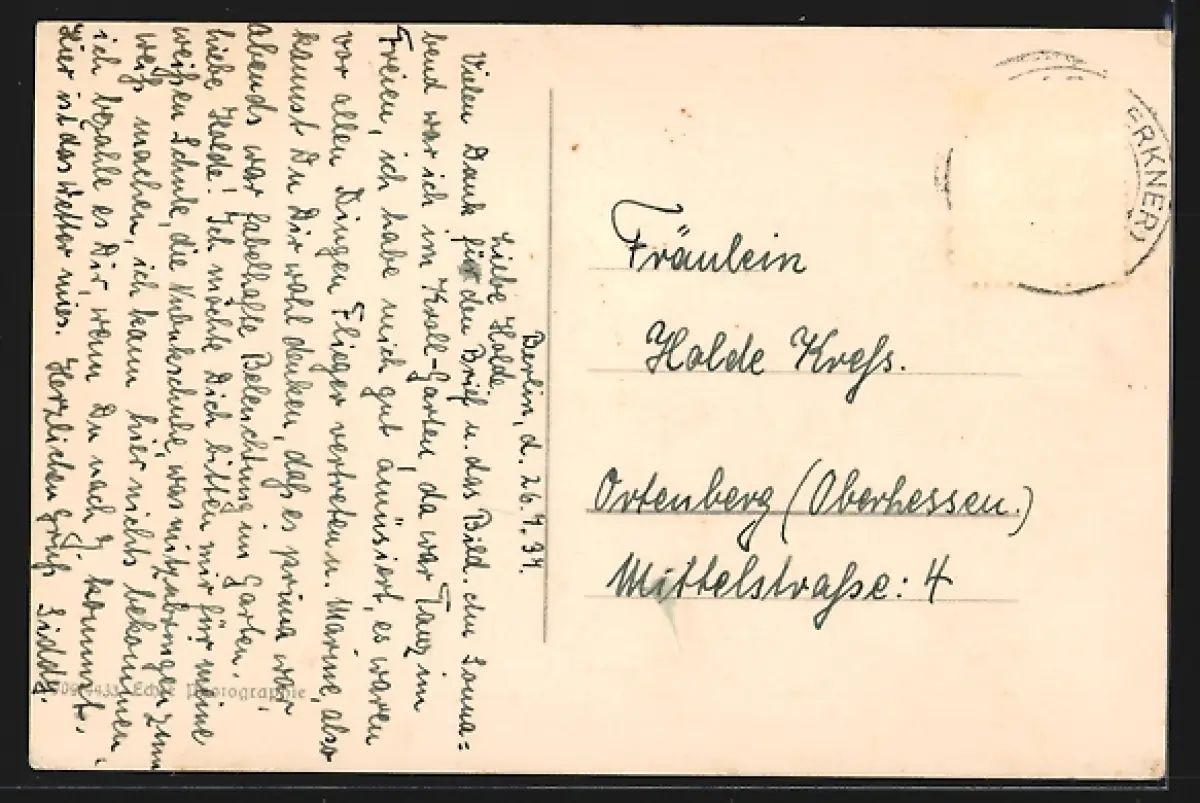 Berlin, d. 26.7.37.
Liebe Holde.
Vielen Dank für den Brief u. das Bild. am Sonna=
bend war ich im Kroll-Garten, da war Tanz im
Freien, ich habe mich gut amüsiert, es waren
vor allen Dingen Flieger vertreten u. Marine, also
kannst Du Dir wohl denken, daß es prima war
abends war fabelhafte Beleuchtung im Garten.
Liebe Holde! Ich möchte Dich bitten mir für meine
weißen Schuhe, die was mitzubringen zum
weiß machen, ich kann hier nichts bekommen,
ich bezahle es Dir, wenn Du nach kommst.
Hier ist das Wetter mies. Herzlichen Gruß Siddy.
Echte Photographie
ERKNER
Fräulein
Holde Kreß.
Ortenberg (Oberhessen.)
Mittelstraße: 4